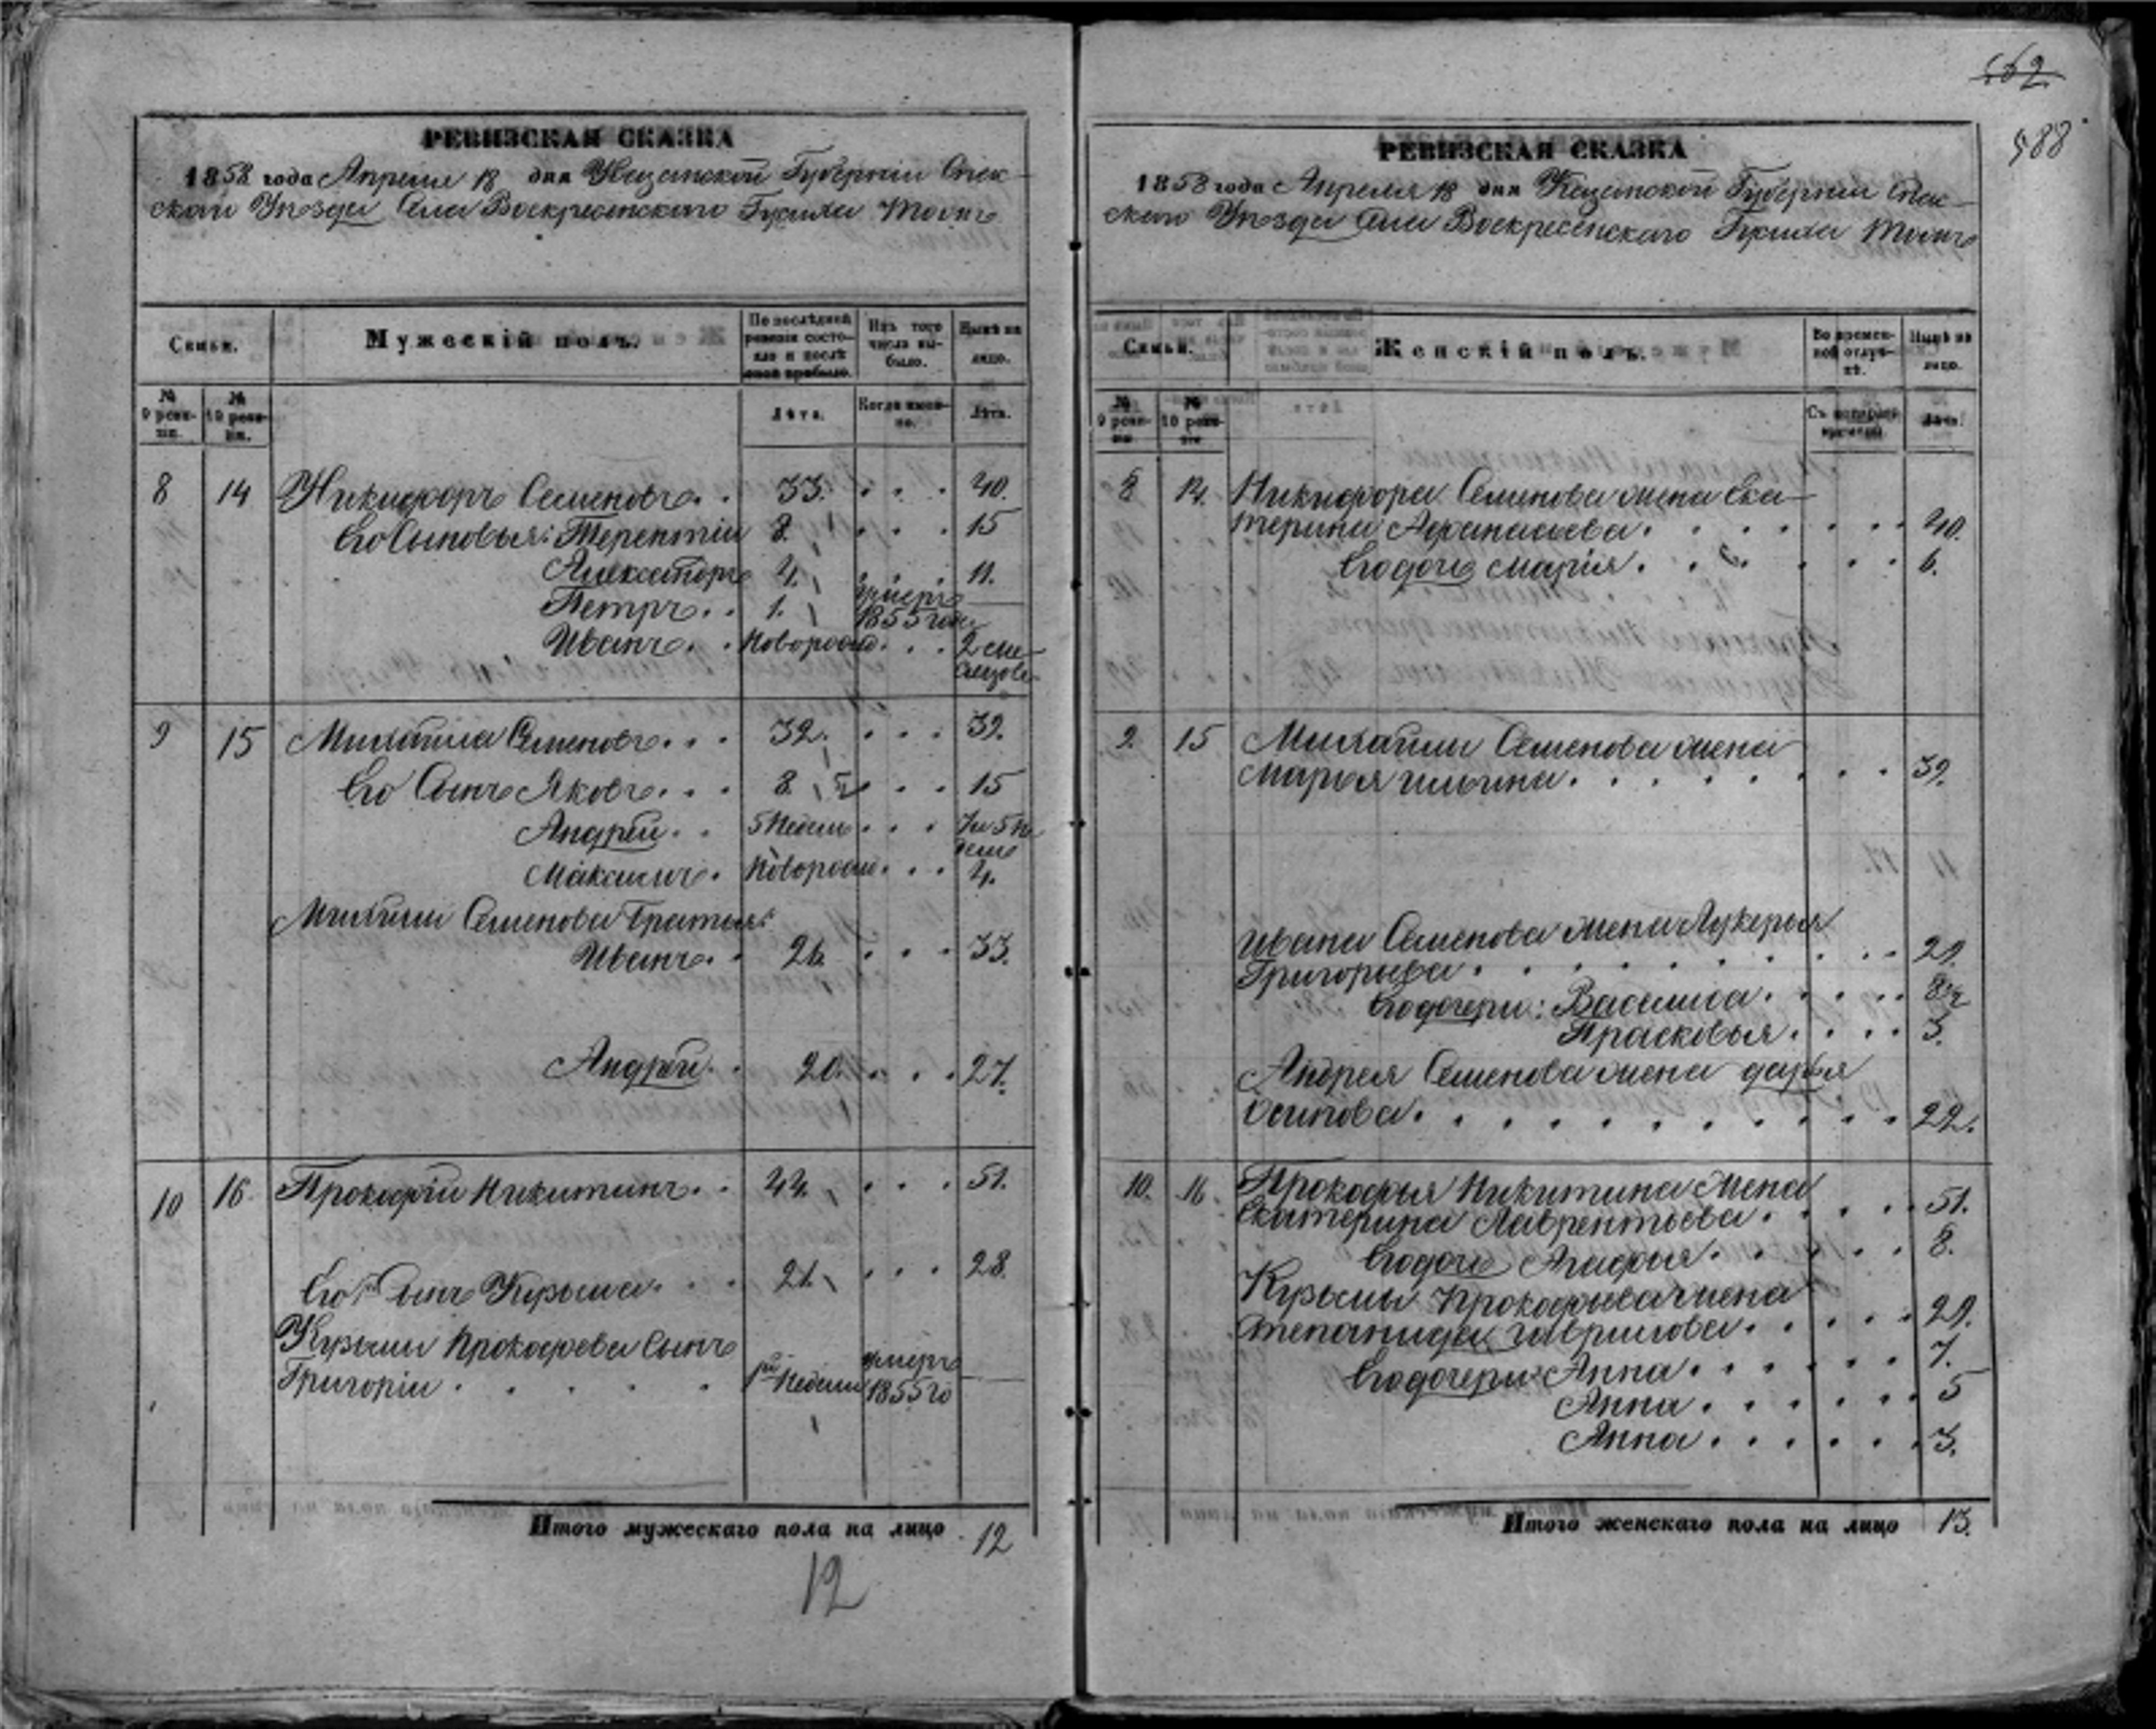 562
588
РЕВИЗСКАЯ СКАЗКА
1858 года Апреля 18 дня Казанской Губернiи Спас-
скаго Уѣзда Села Воскресенскаго Бужиха тожъ
Семьи.
Мужескiй полъ.
По послѣдней ревизiи состояло и послѣ оной прибыло.
Изъ того числа выбыло.
Нынѣ на лицо.
№ 9 ревизiи.
№ 10 ревизiи.
Лѣта.
Когда именно.
Лѣта.
8 14 Никифоръ Семеновъ. . 33. . . . 40.
Его Сыновья: Терентiй 8. . . . 15
Александръ 4. 11.
Петръ . . 1. умеръ 1855 года —
Иванъ . . Новорожд. . . . 2 ме-
сяцовъ
9 15 Михайла Семеновъ. . . 32. . . . 39.
Его Сынъ Яковъ. . . 8. . . 15
Андрей . . 5 Недель . . . 7 и 5 не
дель
Максимъ . Новорожд. . . . 4.
Михайлы Семенова Братья:
Иванъ. . 26. . . . 33.
Андрей. . 20. . . . 27.
10 16. Прокофiй Никитинъ. . 44. . . . 51.
Его Сынъ Кузьма. . . 21. . . . 28.
Кузьмы Прокофьева Сынъ
Григорiй . . . . . Недели умеръ 1855 го —
Итого мужескаго пола на лицо . 12
12
РЕВИЗСКАЯ СКАЗКА
1858 года Апреля 18 дня Казанской Губернiи Спас-
скаго Уѣзда Села Воскресенскаго Бужиха тожъ
Семьи.
Женскiй полъ.
Во временной отлучкѣ.
Нынѣ на лицо.
№ 9 ревизiи
№ 10 ревизiи
Съ котораго времени.
Лѣта.
8 14. Никифора Семенова жена Ека-
терина Афанасьева. . . . . . . 40.
Его дочь Марiя. . . . . . 6.
9. 15 Михайлы Семенова жена
Марья Ильина. . . . . . . . 39.
Ивана Семенова жена Лукерья
Григорьева. . . . . . . . . 29.
Его дочери: Василиса. . . . . 8 1/2
Прасковья. . . . 3.
Андрея Семенова жена Дарья
Осипова. . . . . . . . . . 22.
10. 16 Прокофья Никитина Жена
Екатерина Лаврентьева. . . . . 51.
Его дочь Агафья. . . . . 8.
Кузьмы Прокофьева жена
Степанида Гаврилова. . . . . 29.
Его дочери: Анна. . . . . . 7.
Анна. . . . . . 5
Анна. . . . . . 3.
Итого женскаго пола на лицо 13.